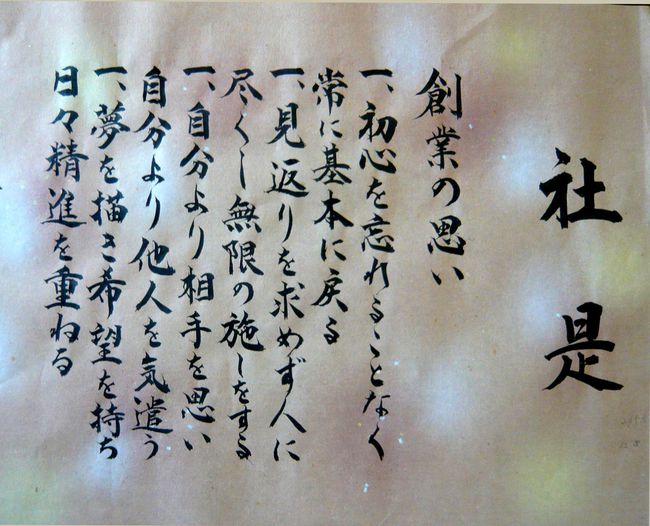 社是
創業の思い
一、初心を忘れることなく
常に基本に戻る
一、見返りを求めず人に
尽くし無限の施しをする
一、自分より相手を思い
自分より他人を気遣う
一、夢を描き希望を持ち
日々精進を重ねる